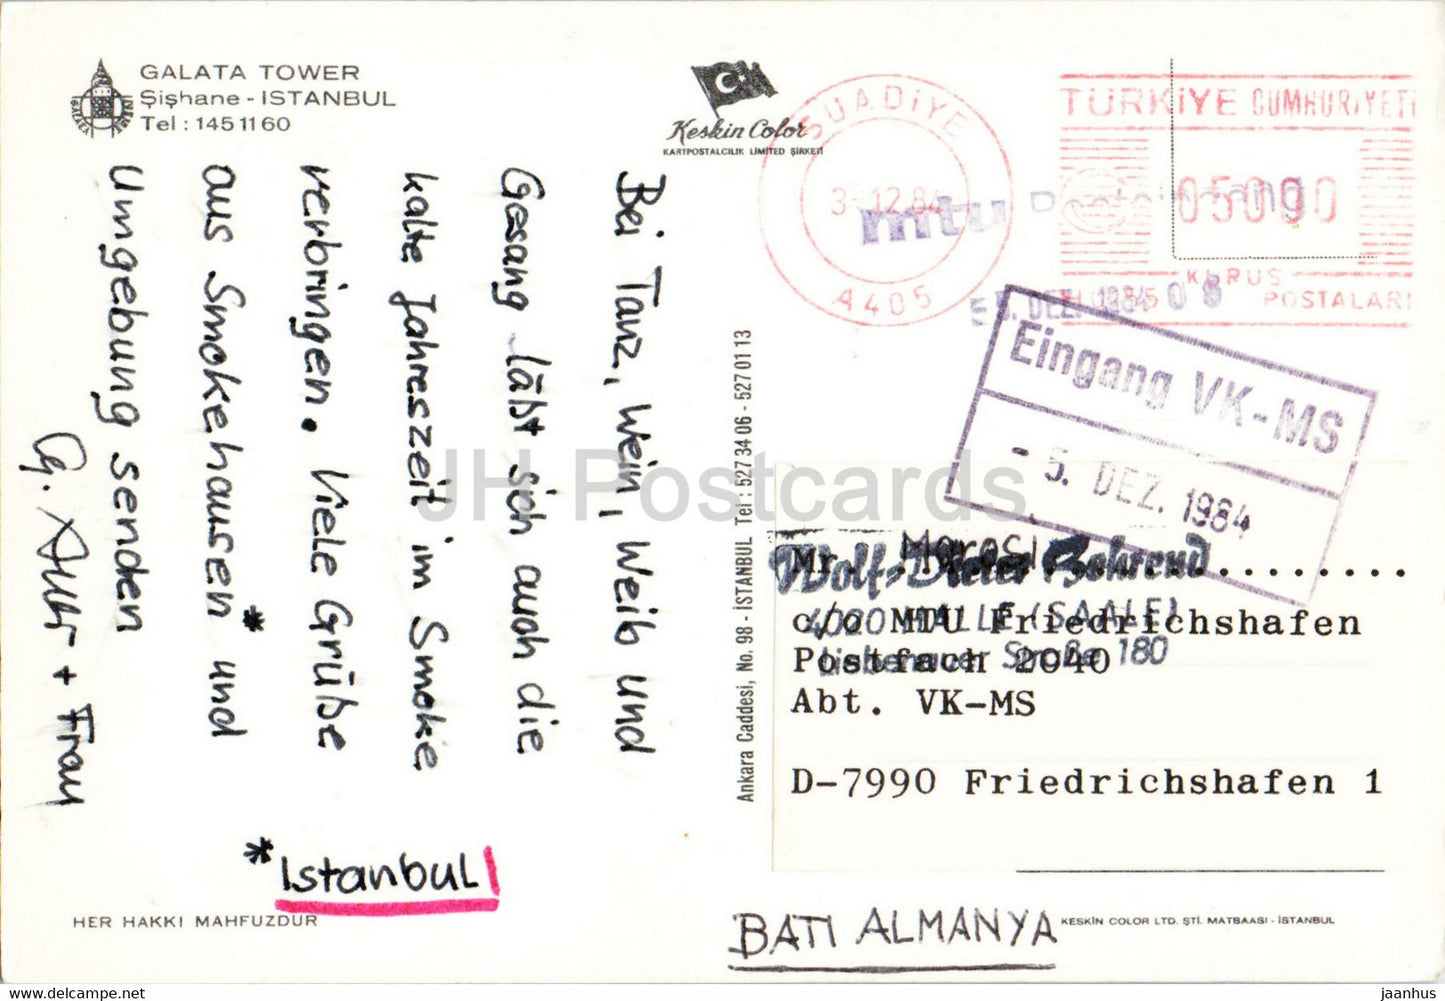 GALATA TOWER
Şişhane - ISTANBUL
Tel : 145 11 60
Keskin Color
KARTPOSTALCILIK LIMITED ŞİRKETİ
SUADİYE
3-12.84
A405
TÜRKİYE CUMHURİYETİ
05000
KURUŞ
POSTALARI
mtu Posteingang
5. DEZ. 1984 09
Eingang VK-MS
- 5. DEZ. 1984
Bei Tanz, Wein, Weib und
Gesang läßt sich auch die
kalte Jahreszeit im Smoke
verbringen. Viele Grüße
aus Smokehausen* und
Umgebung senden
+ Frau
*Istanbul
Ankara Caddesi, No. 98 - İSTANBUL Tel : 527 34 06 - 527 01 13
Mr. Marosi
Wolf-Dieter Behrend
4020 HALLE (SAALE)
Straße 180
c/o MTU Friedrichshafen
Postfach 2040
Abt. VK-MS
D-7990 Friedrichshafen 1
BATI ALMANYA
HER HAKKI MAHFUZDUR
KESKİN COLOR LTD. ŞTİ. MATBAASI - İSTANBUL
JH Postcards
jaanhus.com
jaanhus